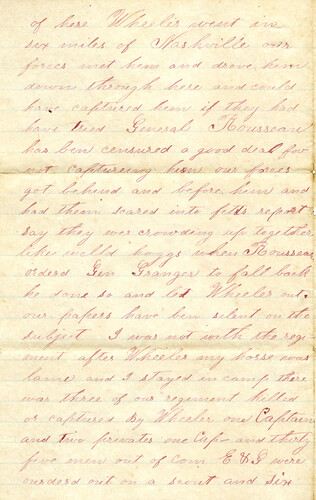 of here Wheeler went in
six miles of Nashville our
forces met hem and drove hem
down through here and could
have captured hem if they had
have tried General Rousseau
has ben censured a good deal for
not captureing hem our forces
got behend and before hem and
had them scared into fitts report
say they wer crowding up together
like wild hoggs when Rousseau
orderd Gen Granger to fall back
he done so and let Wheeler out
our papers have ben silent on the
subject I was not with the regi
ment after Wheeler my horse was
lame and I stayed in camp there
was three of our regiment killed
or captured by Wheeler one Captain
and two privates one Cap- and thirty
five men out of Com E & G were
ourderd out on a scout and six